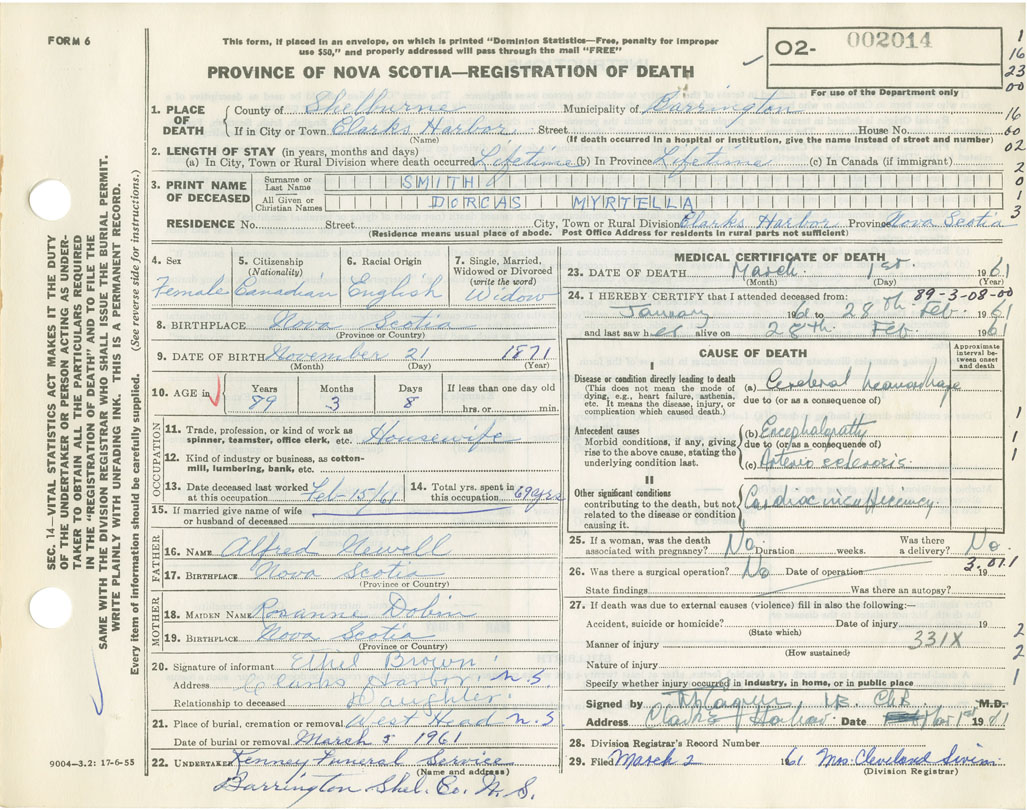 FORM 6
This form, if placed in an envelope, on which is printed "Dominion Statistics—Free, penalty for improper
use $50," and properly addressed will pass through the mail "FREE"
PROVINCE OF NOVA SCOTIA—REGISTRATION OF DEATH
02- 002014
For use of the Department only
1. PLACE OF DEATH
County of Shelburne Municipality of Barrington
If in City or Town Clarks Harbor Street House No.
(Name) (If death occurred in a hospital or institution, give the name instead of street and number)
2. LENGTH OF STAY (in years, months and days)
(a) In City, Town or Rural Division where death occurred Lifetime (b) In Province Lifetime (c) In Canada (if immigrant)
3. PRINT NAME OF DECEASED
Surname or Last Name SMITH
All Given or Christian Names DORCAS MYRTELLA
RESIDENCE No. Street City, Town or Rural Division Clarks Harbor Province Nova Scotia
(Residence means usual place of abode. Post Office Address for residents in rural parts not sufficient)
4. Sex Female
5. Citizenship (Nationality) Canadian
6. Racial Origin English
7. Single, Married, Widowed or Divorced (write the word) Widow
8. BIRTHPLACE Nova Scotia
(Province or Country)
9. DATE OF BIRTH November 21 1871
(Month) (Day) (Year)
10. AGE in Years Months Days If less than one day old
89 3 8 hrs. or min.
OCCUPATION
11. Trade, profession, or kind of work as
spinner, teamster, office clerk, etc. Housewife
12. Kind of industry or business, as cotton-
mill, lumbering, bank, etc.
13. Date deceased last worked at this occupation Feb-15/61
14. Total yrs. spent in this occupation 69 yrs
15. If married give name of wife
or husband of deceased
FATHER
16. NAME Alfred Newell
17. BIRTHPLACE Nova Scotia
(Province or Country)
MOTHER
18. MAIDEN NAME Rosanne
19. BIRTHPLACE Nova Scotia
(Province or Country)
20. Signature of informant Ethel Brown
Address Clarks Harbor N.S.
Relationship to deceased Daughter
21. Place of burial, cremation or removal West Head N.S
Date of burial or removal March 5 1961
22. UNDERTAKER Kenney Funeral Service
(Name and address)
Barrington Shel. Co. N.S.
MEDICAL CERTIFICATE OF DEATH
23. DATE OF DEATH March 1st 1961
(Month) (Day) (Year)
89-3-08-00
24. I HEREBY CERTIFY that I attended deceased from:
January 1961 to 28th Feb. 1961
and last saw her alive on 28th Feb. 1961
CAUSE OF DEATH
Approximate interval between onset and death
I
Disease or condition directly leading to death
(This does not mean the mode of
dying, e.g., heart failure, asthenia,
etc. It means the disease, injury, or
complication which caused death.)
(a) Cerebral hemorrhage
due to (or as a consequence of)
Antecedent causes
Morbid conditions, if any, giving
rise to the above cause, stating the
underlying condition last.
(b) Encephalopathy
due to (or as a consequence of)
(c) Arterio sclerosis.
II
Other significant conditions
contributing to the death, but not
related to the disease or condition
causing it.
Cardiac insufficiency
25. If a woman, was the death
associated with pregnancy? No. Duration weeks. Was there a delivery? No.
26. Was there a surgical operation? No Date of operation 19
State findings Was there an autopsy?
27. If death was due to external causes (violence) fill in also the following:—
Accident, suicide or homicide? Date of injury 19
(State which)
Manner of injury 331X
(How sustained)
Nature of injury
Specify whether injury occurred in industry, in home, or in public place
Signed by M.B. Ch.B M.D.
Address Clarks Harbor. Date Mar 1st 1961
28. Division Registrar's Record Number
29. Filed March 2 1961 Mrs. Cleveland
(Division Registrar)
1
16
23
00
16
60
02
2
0
1
3
1
1
1
3.01.1
2
2
1
SEC. 14—VITAL STATISTICS ACT MAKES IT THE DUTY
OF THE UNDERTAKER OR PERSON ACTING AS UNDER-
TAKER TO OBTAIN ALL THE PARTICULARS REQUIRED
IN THE "REGISTRATION OF DEATH" AND TO FILE THE
SAME WITH THE DIVISION REGISTRAR WHO SHALL ISSUE THE BURIAL PERMIT.
WRITE PLAINLY WITH UNFADING INK. THIS IS A PERMANENT RECORD.
Every item of information should be carefully supplied. (See reverse side for instructions.)
9004-3.2: 17-6-55